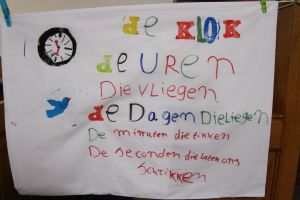 de KLOK
de UREN
Die VLiegen
de Dagen DieLiegen
De minuten die tikken
De seconden die Laten ons
Schrikken